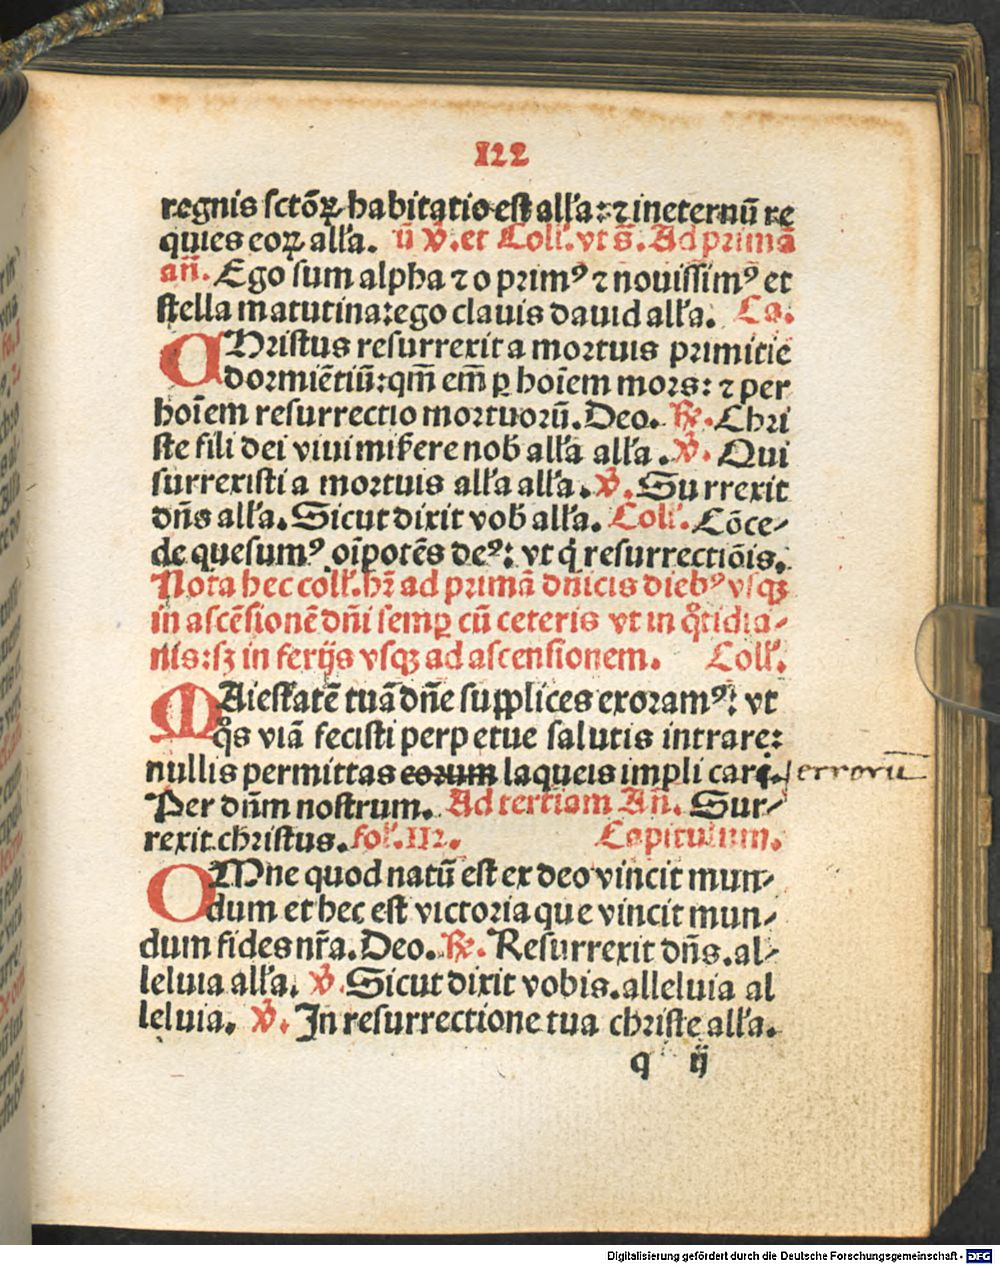 122
regnis sctõꝝ habitatio est allʼa: ⁊ in eternũ re
quies eoꝝ allʼa. ũ ℣. et Collʼ. vt s̃. Ad primã
añ. Ego sum alpha ⁊ o primꝰ ⁊ nouissimꝰ et
stella matutina: ego clauis dauid allʼa. Ca.
CHristus resurrexit a mortuis primitie
dormiẽtiũ: qm̃ em̃ ꝑ hoĩem mors: ⁊ per
hoĩem resurrectio mortuorũ. Deo. ℟. Chri
ste fili dei viui mis̃ere nob̃ allʼa allʼa. ℣. Qui
surrexisti a mortuis allʼa allʼa. ℣. Surrexit
dñs allʼa. Sicut dixit vob̃ allʼa. Collʼ. Cõce-
de quesumꝰ oĩpotẽs deꝰ: vt q̃ resurrectiõis.
Nota hec collʼ. hr̃ ad primã dñicis diebꝰ vsqꝫ
in ascẽsionẽ dñi semꝑ cũ ceteris vt in q̊tidia-
nis: sꝫ in ferijs vsqꝫ ad ascensionem. Collʼ.
MAiestatẽ tuã dñe supplices exoramꝰ: vt
q̊s viã fecisti perpetue salutis intrare:
nullis permittas eorum laqueis implicari. errorũ
Per dñm nostrum. Ad tertiam Añ. Sur-
rexit christus. folʼ. III. Capitulum.
OMne quod natũ est ex deo vincit mun-
dum et hec est victoria que vincit mun-
dum fides nr̃a. Deo. ℟. Resurrexit dñs. al-
leluia allʼa. ℣. Sicut dixit vobis. alleluia al
leluia. ℣. In resurrectione tua christe allʼa.
q ij
Digitalisierung gefördert durch die Deutsche Forschungsgemeinschaft - DFG